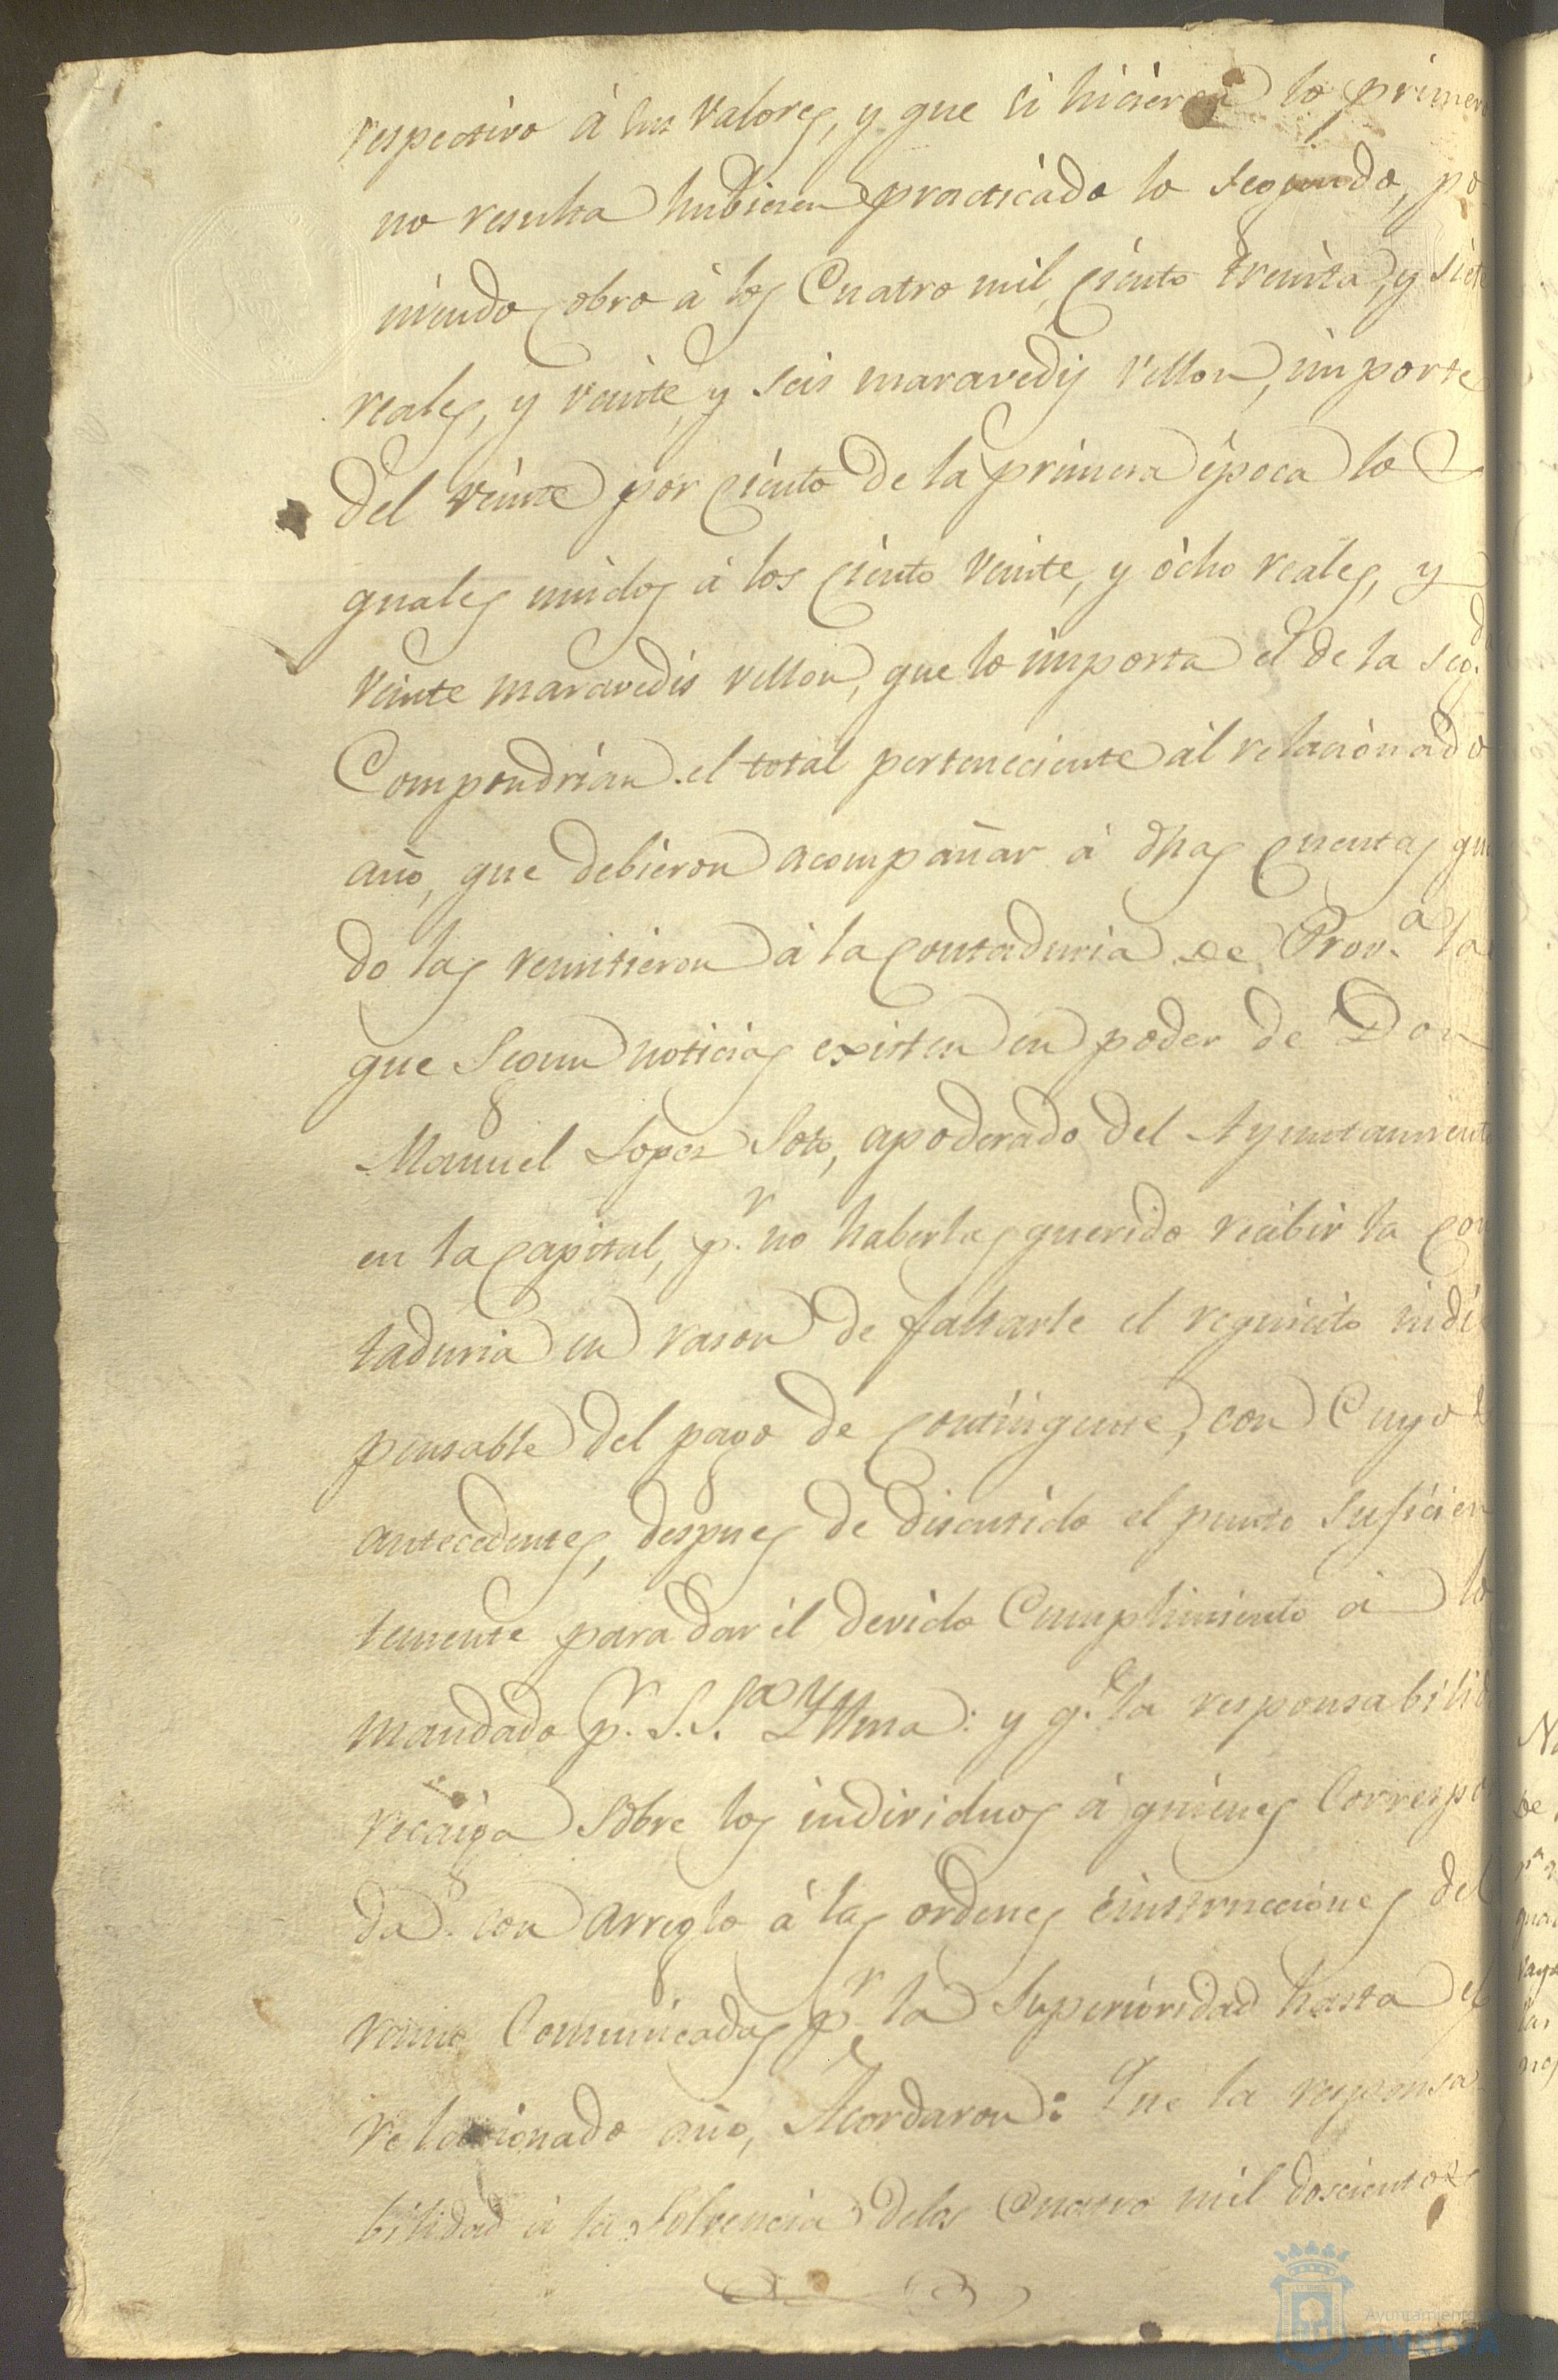 respectivo á sus valores, y que si hicieron lo primero
no resulta hubiesen practicado lo segundo, po
niendo cobro á los Cuatro mil, ciento treinta, y siete
reales, y veinte, y seis maravedis vellon, importe
del veinte por ciento de la primera época lo
quales unidos á los ciento veinte, y ocho reales, y
veinte maravedis vellon, que lo importa el de la seg.da
Compondrian el total perteneciente al relacionado
año, que debieron acompañar á dhas cuentas qu
do las remitieron á la contaduria de Prov.a la
que segun noticias existen en poder de Don
Manuel Lopez Soto, apoderado del Ayuntamiento
en la capital, p.r no haberlas querido recibir la con
taduria en rason de faltarle el requisito indi
pensable del pago de contingente, con Cuyo
antecedentes, despues de discutido el punto suficien
temente para dar el devido Cumplimiento á lo
mandado p.r S.S.a Yllma: y q.e la responsabilid
recaiga sobre los individuos á quienes Correspo
da con arreglo á las ordenes é instrucciones del
ramo Comunicadas p.r la Superioridad hasta el
relacionado año, Acordaron: Que la responsa
bilidad á la solvencia delos Cuatro mil doscientos
Ayuntamiento
HUELVA